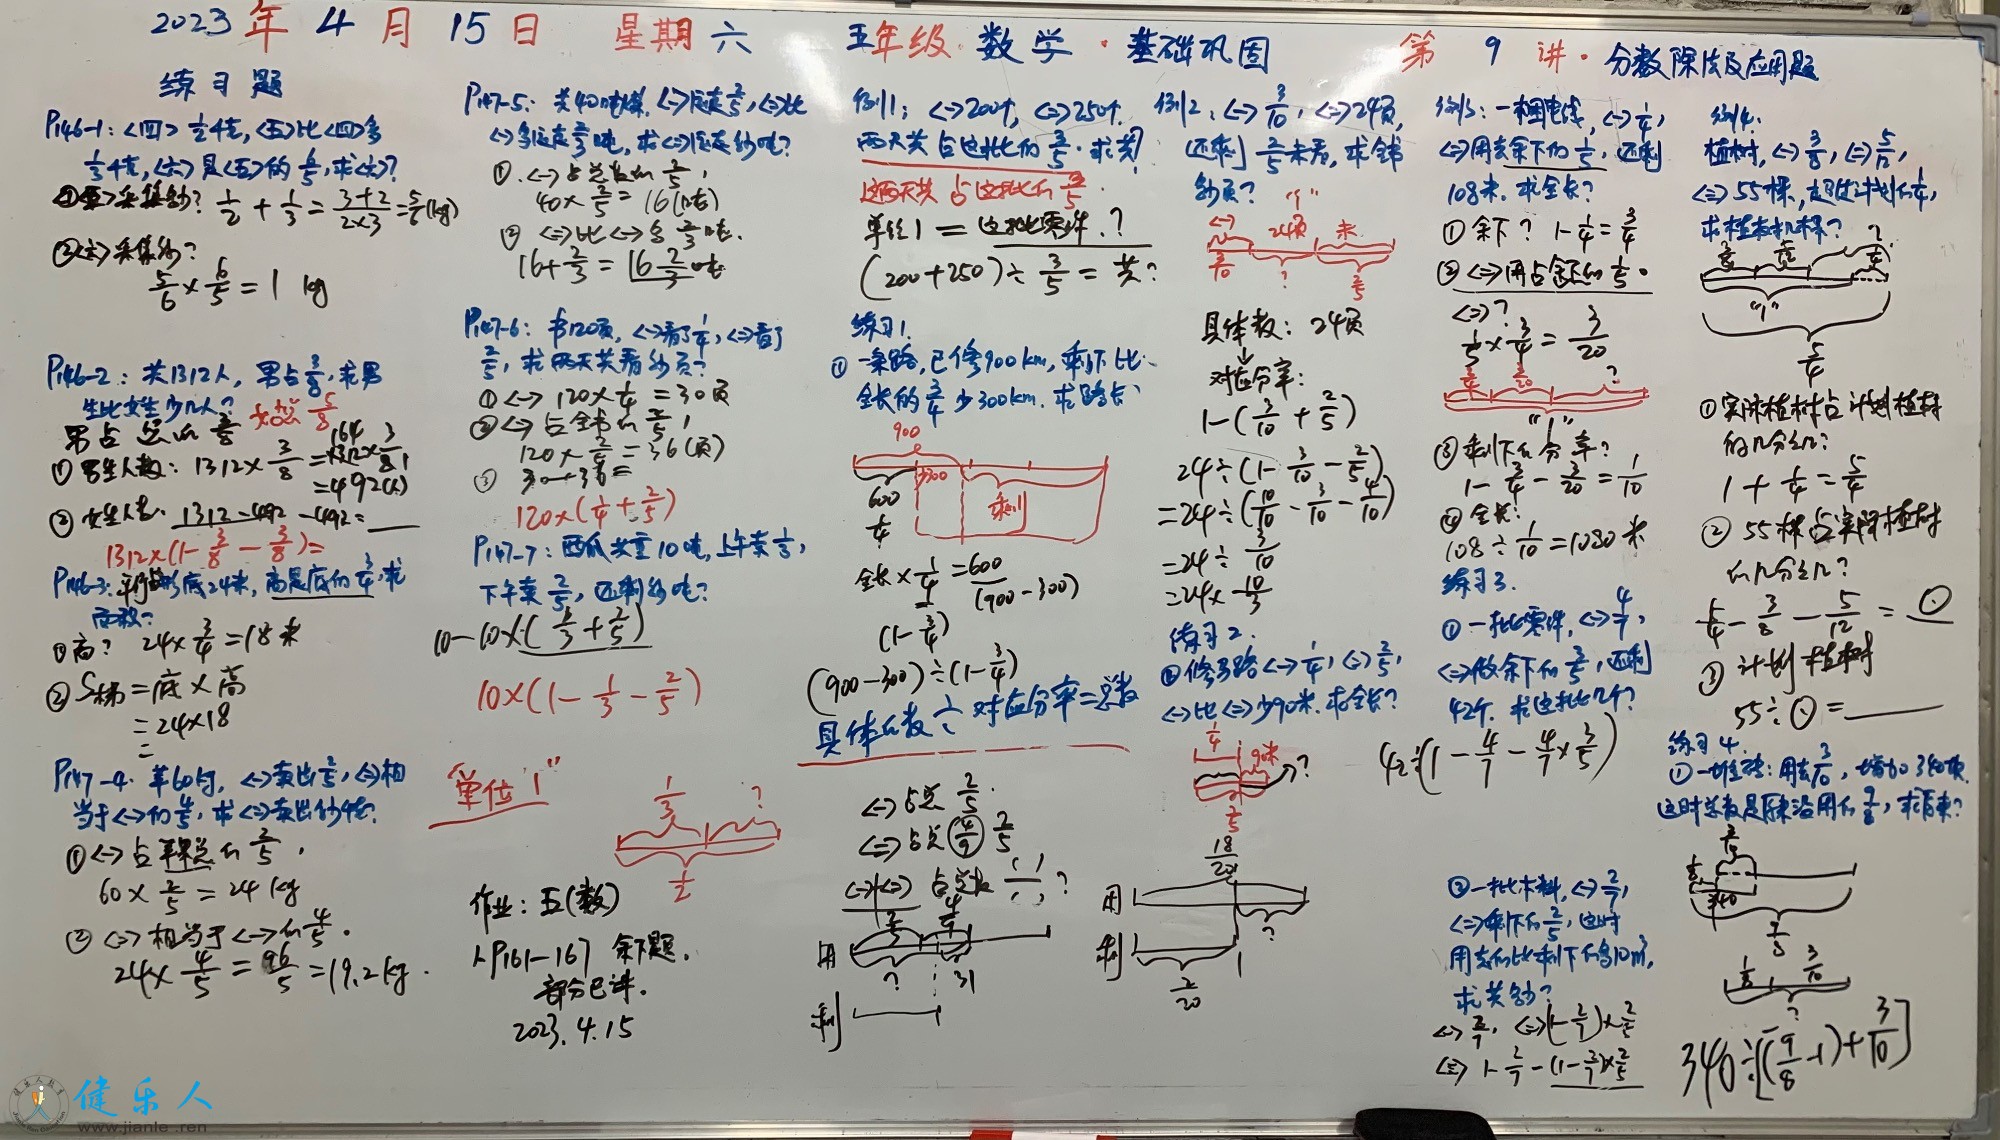 2023年4月15日 星期六 五年级·数学·基础巩固 第9讲·分数除法及应用题
练习题
P146-1: <四> 1/2千克, <五>比<四>多
1/3千克, <六>是<五>的6/5, 求<六>?
1/2 + 1/3 = (3+2)/(2×3) = 5/6 (kg)
②<六>采集多少?
5/6 × 6/5 = 1 kg
P146-2: 共1312人, 男占3/8, 求男
生比女生少几人?
男占总的3/8 女占总5/8
①男生人数: 1312×3/8
=492(人)
②女生人数: 1312-492 -492=
1312×(1-3/8-3/8)=
P146-3: 平行四边形底24米, 高是底的3/4, 求
①高? 24×3/4=18米
=底×高
=24×18
=
P147-4: 苹60匀, <一>卖出2/5, <二>相
当于<一>的4/5, 求<二>卖出多少千克?
①<一>占苹果总的2/5,
60×2/5=24kg
②<二>相当于<一>的4/5.
24×4/5=96/5=19.2kg.
P147-5: 共40吨煤, <一>运走2/5, <二>比
<一>多运走2/3吨, 求<二>运走多少吨?
①.<一>占总长的2/5,
40×2/5=16(吨)
②<二>比<一>多2/3吨.
16+2/3=16 2/3吨
P147-6: 书120页, <一>看了1/4, <二>看了
2/5, 求两天共看多少页?
①<一> 120×1/4=30页
②<二>占全书的2/5,
120×2/5=36(页)
③ 30+36=
120×(1/4+2/5)
P147-7: 西瓜共重10吨, 上午卖1/3,
下午卖2/5, 还剩多少吨?
10-10×(1/3+2/5)
10×(1-1/3-2/5)
"单位1"
1/3 ?
作业: 五(数)
P161-167 余下题.
部分已讲.
2023.4.15
例1: <一>200个, <二>250个.
两天共占这批的3/5. 求共?
这两天共占这批的3/5.
单位1=这批零件.?
(200+250)÷3/5=共?
练习1
①一条路, 已修900km, 剩下比
全长的3/4少300km. 求路长.
900
600 300 剩
1/4
全长×1/4=600
(900-300)
(1-3/4)
(900-300)÷(1-3/4)
具体的数÷对应分率=总数
<一>占总2/5.
<二>占总(4/9) 2/5
<一>+<二>占总长( )/( )?
2/5 4/9
用
? 31
剩
例2: <一>3/10, <二>24页,
还剩2/5未看, 求全书
多少页?
"1"
<一> 24页 未
3/10 ? 2/5
具体数: 24页
↓
对应分率:
1-(3/10+2/5)
24÷(1-3/10-2/5)
=24÷(10/10-3/10-4/10)
=24÷3/10
=24×10/3
练习2.
②修马路<一>1/4, <二>2/5,
<一>比<二>少90米. 求全长?
1/4 90米 ?
2/5
18/20
用
?
剩
2/20
例3: 一捆电线, <一>1/4,
<二>用去余下的1/5, 还剩
108米. 求全长?
①余下? 1-1/4=3/4
②<二>用占余下的1/5.
<二>?
1/5×3/4=3/20
3/20 ?
"1"
③剩下的分率?
1-3/4-3/20=1/10
④全长?
108÷1/10=1080米
练习3.
①一批零件, <一>4/7,
<二>做余下的3/5, 还剩
42个. 求这批几个?
42÷(1-4/7-4/7×3/5)
②一批木料, <一>2/7,
<二>剩下的2/5, 这时
用去的比剩下的多10m³,
求共多少?
<一>2/7, <二>(1-2/7)×2/5
<三>1-2/7-(1-2/7)×2/5
例4.
植树, <一>3/8, <二>5/12,
<三>55棵, 超过计划的1/4,
求植树几棵?
3/8 5/12 ?
1/4
"1"
5/4
①实际植树占计划植树
的几分之几?
1+1/4=5/4
②55棵占实际植树
的几分之几?
5/4-3/8-5/12=①
③计划植树
55÷①=
练习4.
①一堆砖: 用去3/10, 增加340块.
这时总数是原来没用的9/8, 求原来?
340
1/8 3/10
?
340÷[(9/8-1)+3/10]
健乐人
www.jianle.ren